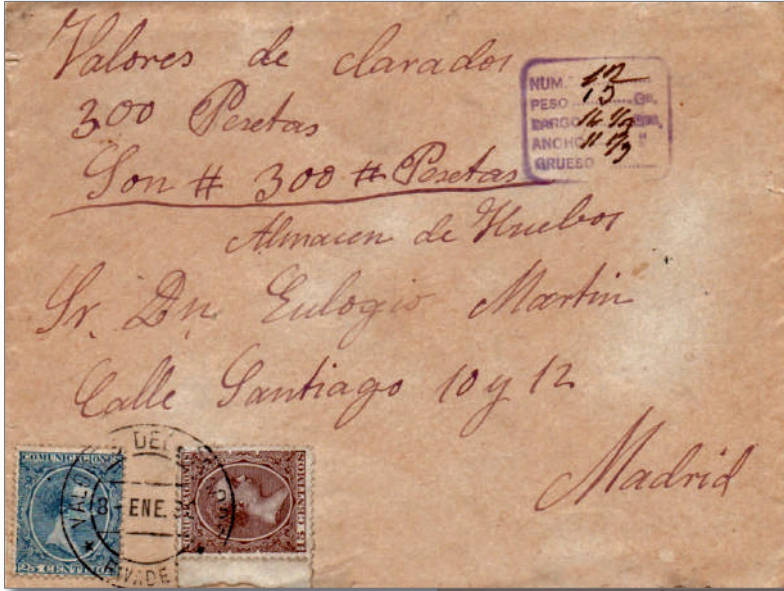 Valores de clarados
300 Pesetas
Son # 300 # Pesetas
NUM. 12
PESO 13 Gs.
LARGO 14 1/2
ANCHO 11 1/2 "
GRUESO
Almacen de Huebos
Sr. Dn. Eulogio Martin
Calle Santiago 10 y 12
Madrid
COMUNICACIONES
25 CENTIMOS
COMUNICACIONES
15 CENTIMOS
8-ENE.